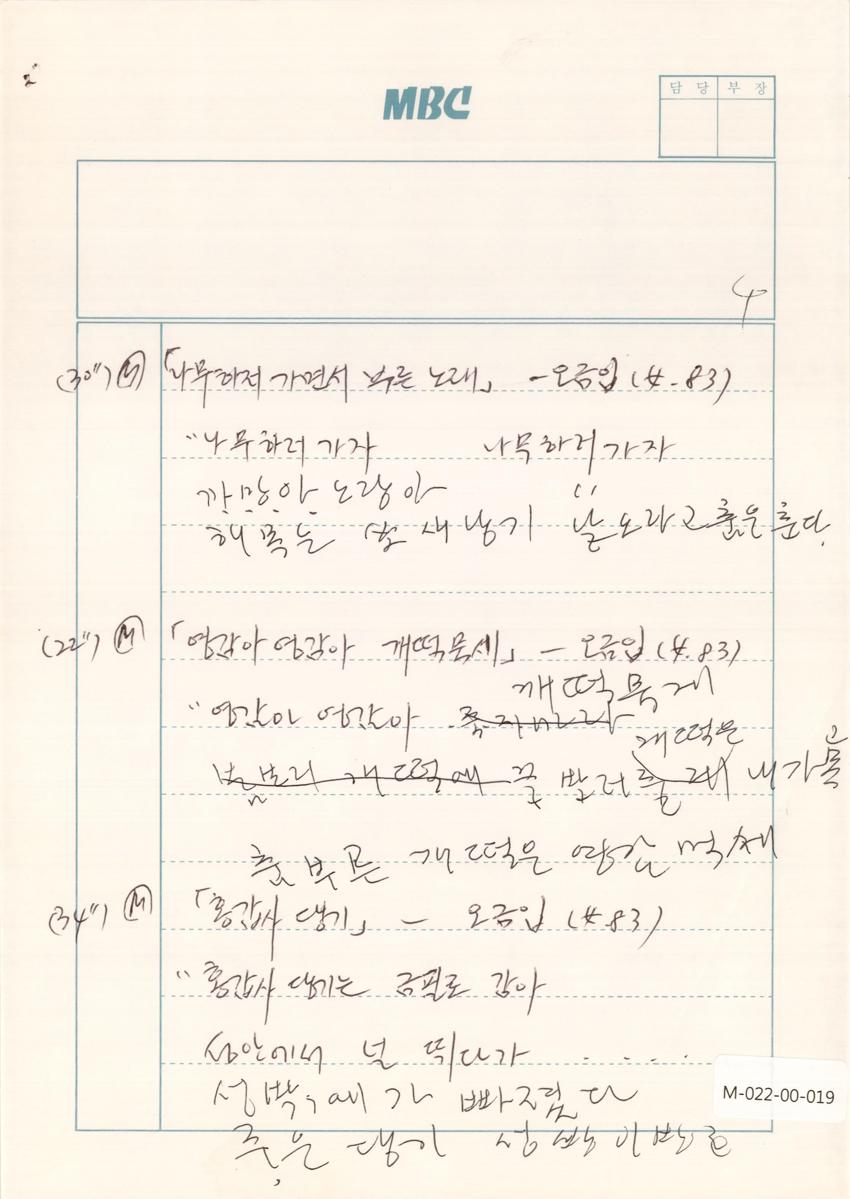 2"
MBC
담 당 부 장
4
(30") M 「나무하러 가면서 부른 노래」 - 오금입 (女. 83)
"나무하러 가자 나무하러 가자
까망아 노랑아
해 는 새 낭기 날 오라고 춤은 춘다.
(22") M 「영감아 영감아 개떡묵세」 - 오금입 (女. 83)
개떡묵게
"영감아 영감아
개떡은
개떡에 꿀 발러 내가 묵고
개떡은 영감 먹
(34") M 「홍갑사 댕기」 - 오금입 (女. 83)
"홍갑사 댕기는 금필로 감아
성안에서 널 뛰다가 . . . .
성밖에가 빠지렸다
주은 댕기 성
M-022-00-019